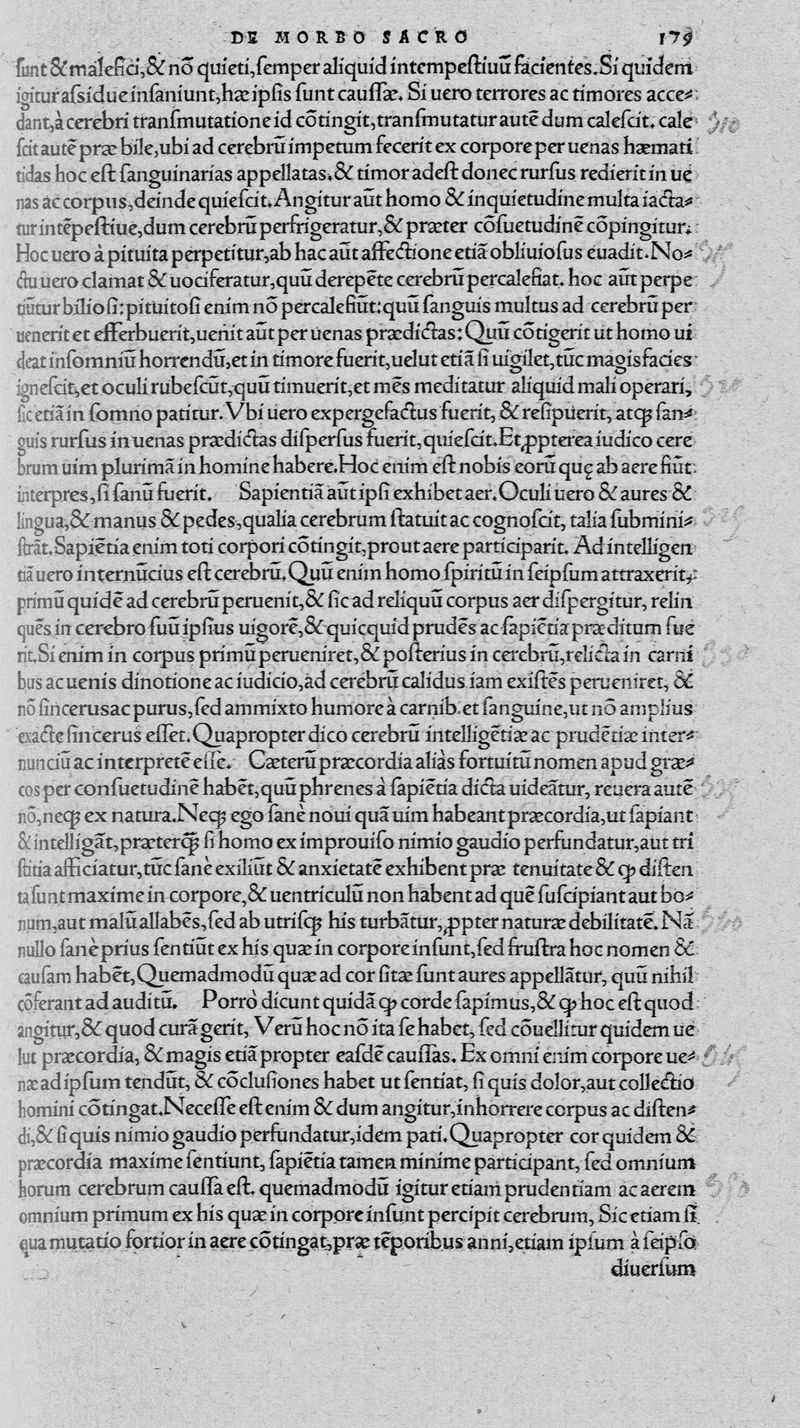 DE MORBO SACRO 179
ſunt & malefici, & nō quieti, ſemper aliquid intempeſtiuū facientes. Si quidem
igitur aſsidue inſaniunt, hæ ipſis ſunt cauſſæ. Si uero terrores ac timores acce⸗
dant, à cerebri tranſmutatione id cōtingit, tranſmutatur autē dum caleſcit. cale
ſcit autē præ bile, ubi ad cerebrū impetum fecerit ex corpore per uenas hæmati
tidas hoc eſt ſanguinarias appellatas. & timor adeſt donec rurſus redierit in ue
nas ac corpus, deinde quieſcit. Angitur aūt homo & inquietudine multa iacta⸗
tur intēpeſtiue, dum cerebrū perfrigeratur, & præter cōſuetudinē cōpingitur.
Hoc uero à pituita perpetitur, ab hac aūt affectione etiā obliuioſus euadit. No⸗
ctu uero clamat & uociferatur, quū derepēte cerebrū percalefiat. hoc aūt perpe
tiūtur bilioſi: pituitoſi enim nō percalefiūt: quū ſanguis multus ad cerebrū per
uenerit et efferbuerit, uenit aūt per uenas prædictas: Quū cōtigerit ut homo ui
deat inſomniū horrendū, et in timore fuerit, uelut etiā ſi uigilet, tūc magis facies
igneſcit, et oculi rubeſcūt, quū timuerit, et mēs meditatur aliquid mali operari,
ſic etiā in ſomno patitur. Vbi uero expergefactus fuerit, & reſipuerit, atqꝫ ſan⸗
guis rurſus in uenas prædictas diſperſus fuerit, quieſcit. Et ꝓpterea iudico cere
brum uim plurimā in homine habere. Hoc enim eſt nobis eorū quę ab aere fiūt
interpres, ſi ſanū fuerit. Sapientiā aūt ipſi exhibet aer. Oculi uero & aures &
lingua, & manus & pedes, qualia cerebrum ſtatuit ac cognoſcit, talia ſubmini⸗
ſtrāt. Sapiētia enim toti corpori cōtingit, prout aere participarit. Ad intelligen
tiā uero internūcius eſt cerebrū. Quū enim homo ſpiritū in ſeipſum attraxerit,
primū quidē ad cerebrū peruenit, & ſic ad reliquū corpus aer diſpergitur, relin
quēs in cerebro ſuū ipſius uigorē, & quicquid prudēs ac ſapiētia præditum fue
rit. Si enim in corpus primū perueniret, & poſterius in cerebrū, relicta in carni
bus ac uenis dinotione ac iudicio, ad cerebrū calidus iam exiſtēs perueniret, &
nō ſincerus ac purus, ſed ammixto humore à carnib. et ſanguine, ut nō amplius
exacte ſincerus eſſet. Quapropter dico cerebrū intelligētiæ ac prudētiæ inter⸗
nunciū ac interpretē eſſe. Cæterū præcordia aliàs fortuitū nomen apud græ⸗
cos per conſuetudinē habēt, quū phrenes à ſapiētia dicta uideātur, reuera autē
nō, neqꝫ ex natura. Neqꝫ ego ſanè noui quā uim habeant præcordia, ut ſapiant
& intelligāt, præterq̄ꝫ ſi homo ex improuiſo nimio gaudio perfundatur, aut tri
ſtitia afficiatur, tūc ſanè exiliūt & anxietatē exhibent præ tenuitate & ꝙ diſten
ta ſunt maxime in corpore, & uentriculū non habent ad quē ſuſcipiant aut bo⸗
num, aut malū allabēs, ſed ab utriſqꝫ his turbātur, ꝓpter naturæ debilitatē. Nā
nullo ſanè prius ſentiūt ex his quæ in corpore inſunt, ſed fruſtra hoc nomen &
cauſam habēt, Quemadmodū quæ ad cor ſitæ ſunt aures appellātur, quū nihil
cōferant ad auditū. Porrò dicunt quidā ꝙ corde ſapimus, & ꝙ hoc eſt quod
angitur, & quod curā gerit, Verū hoc nō ita ſe habet, ſed cōuellitur quidem ue
lut præcordia, & magis etiā propter eaſdē cauſſas. Ex omni enim corpore ue⸗
næ ad ipſum tendūt, & cōcluſiones habet ut ſentiat, ſi quis dolor, aut collectio
homini cōtingat. Neceſſe eſt enim & dum angitur, inhorrere corpus ac diſten⸗
di, & ſi quis nimio gaudio perfundatur, idem pati. Quapropter cor quidem &
præcordia maxime ſentiunt, ſapiētia tamen minime participant, ſed omnium
horum cerebrum cauſſa eſt. quemadmodū igitur etiam prudentiam ac aerem
omnium primum ex his quæ in corpore inſunt percipit cerebrum, Sic etiam ſi
qua mutatio fortior in aere cōtingat, præ tēporibus anni, etiam ipſum à ſeipſo
diuerſum